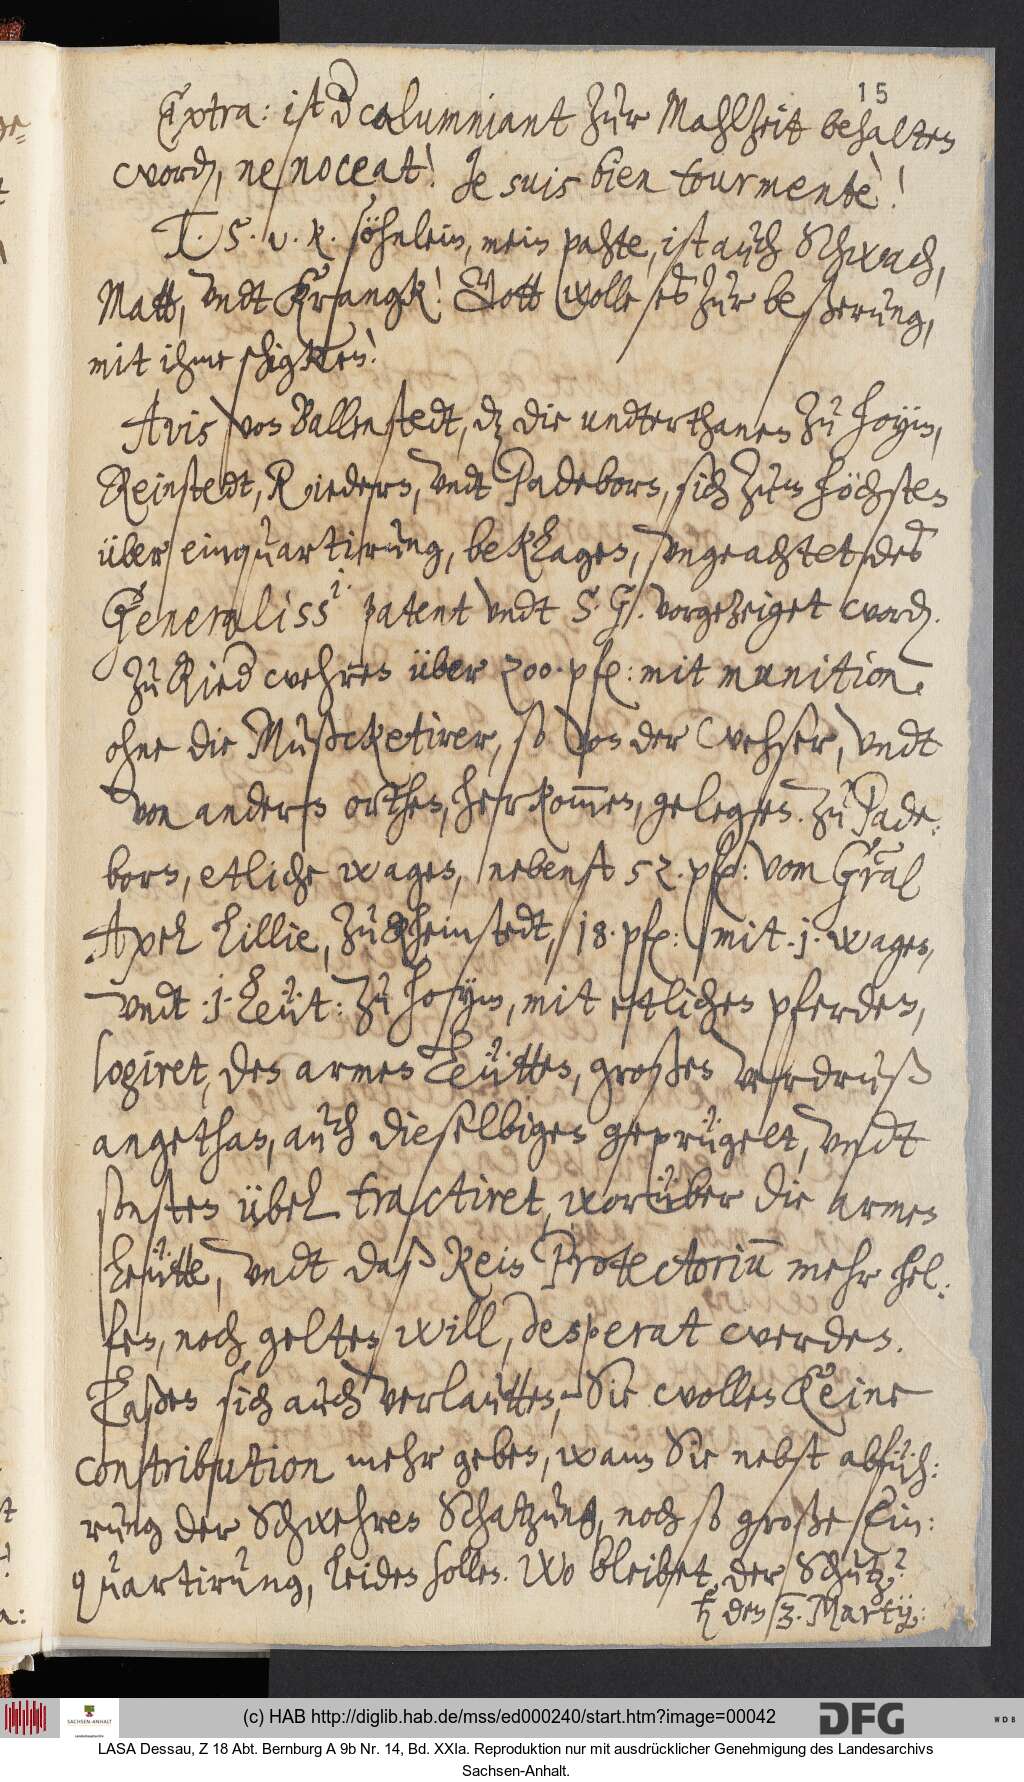 15
Extra: ist d calumniant zur Mahlzeit behalten
word, ne noceat! Je suis bien tourmentè!
T. S. v. k. söhnlein, mein pahte, ist auch Schwach,
Matt, vndt Krangk! Gott wolle es zur beßerung,
mit ihme schigken!
Avis von Ballenstedt, dz die undterthanen zu Hoym,
Reinstedt, Riedern, vndt Padeborn, sich zum höchsten
über einquartirung, beklagen, vngeachtet des
Generaliss.i patent vndt S. G. vorgezeiget word.
Zu Ried wehren über 200. pfe: mit munition
ohne die Mußcketirer, so von der Wehser, vndt
von andern orthen, herkommen, gelegen. Zu Pade:
born, etliche wagen, nebenst 52. pfe: vom Gral
Axel Lillie, zu Rheinstedt, 18. pfe: mit .1. wagen,
vndt .1. Leüt: zu Hoym, mit etlichen pferden,
logiret, den armen Leütten, großen verdruß
angethan, auch dieselbigen geprügelt, vndt
sonsten übel tractiret, worüber die armen
Leütte, vndt daß Kein Protectorium mehr hel:
fen, noch gelten will, desperat werden.
Laßen sich auch verlautten, Sie wollen Keine
contribution mehr geben, wann Sie nebst abfüh:
rung der Schwehren Schatzung, noch so große Ein:
quartirung, leiden sollen. Wo bleibet, der Schutz?
♄ den 3. Martij:
(c) HAB http://diglib.hab.de/mss/ed000240/start.htm?image=00042
SACHSEN-ANHALT
DFG
WDB
LASA Dessau, Z 18 Abt. Bernburg A 9b Nr. 14, Bd. XXIa. Reproduktion nur mit ausdrücklicher Genehmigung des Landesarchivs
Sachsen-Anhalt.